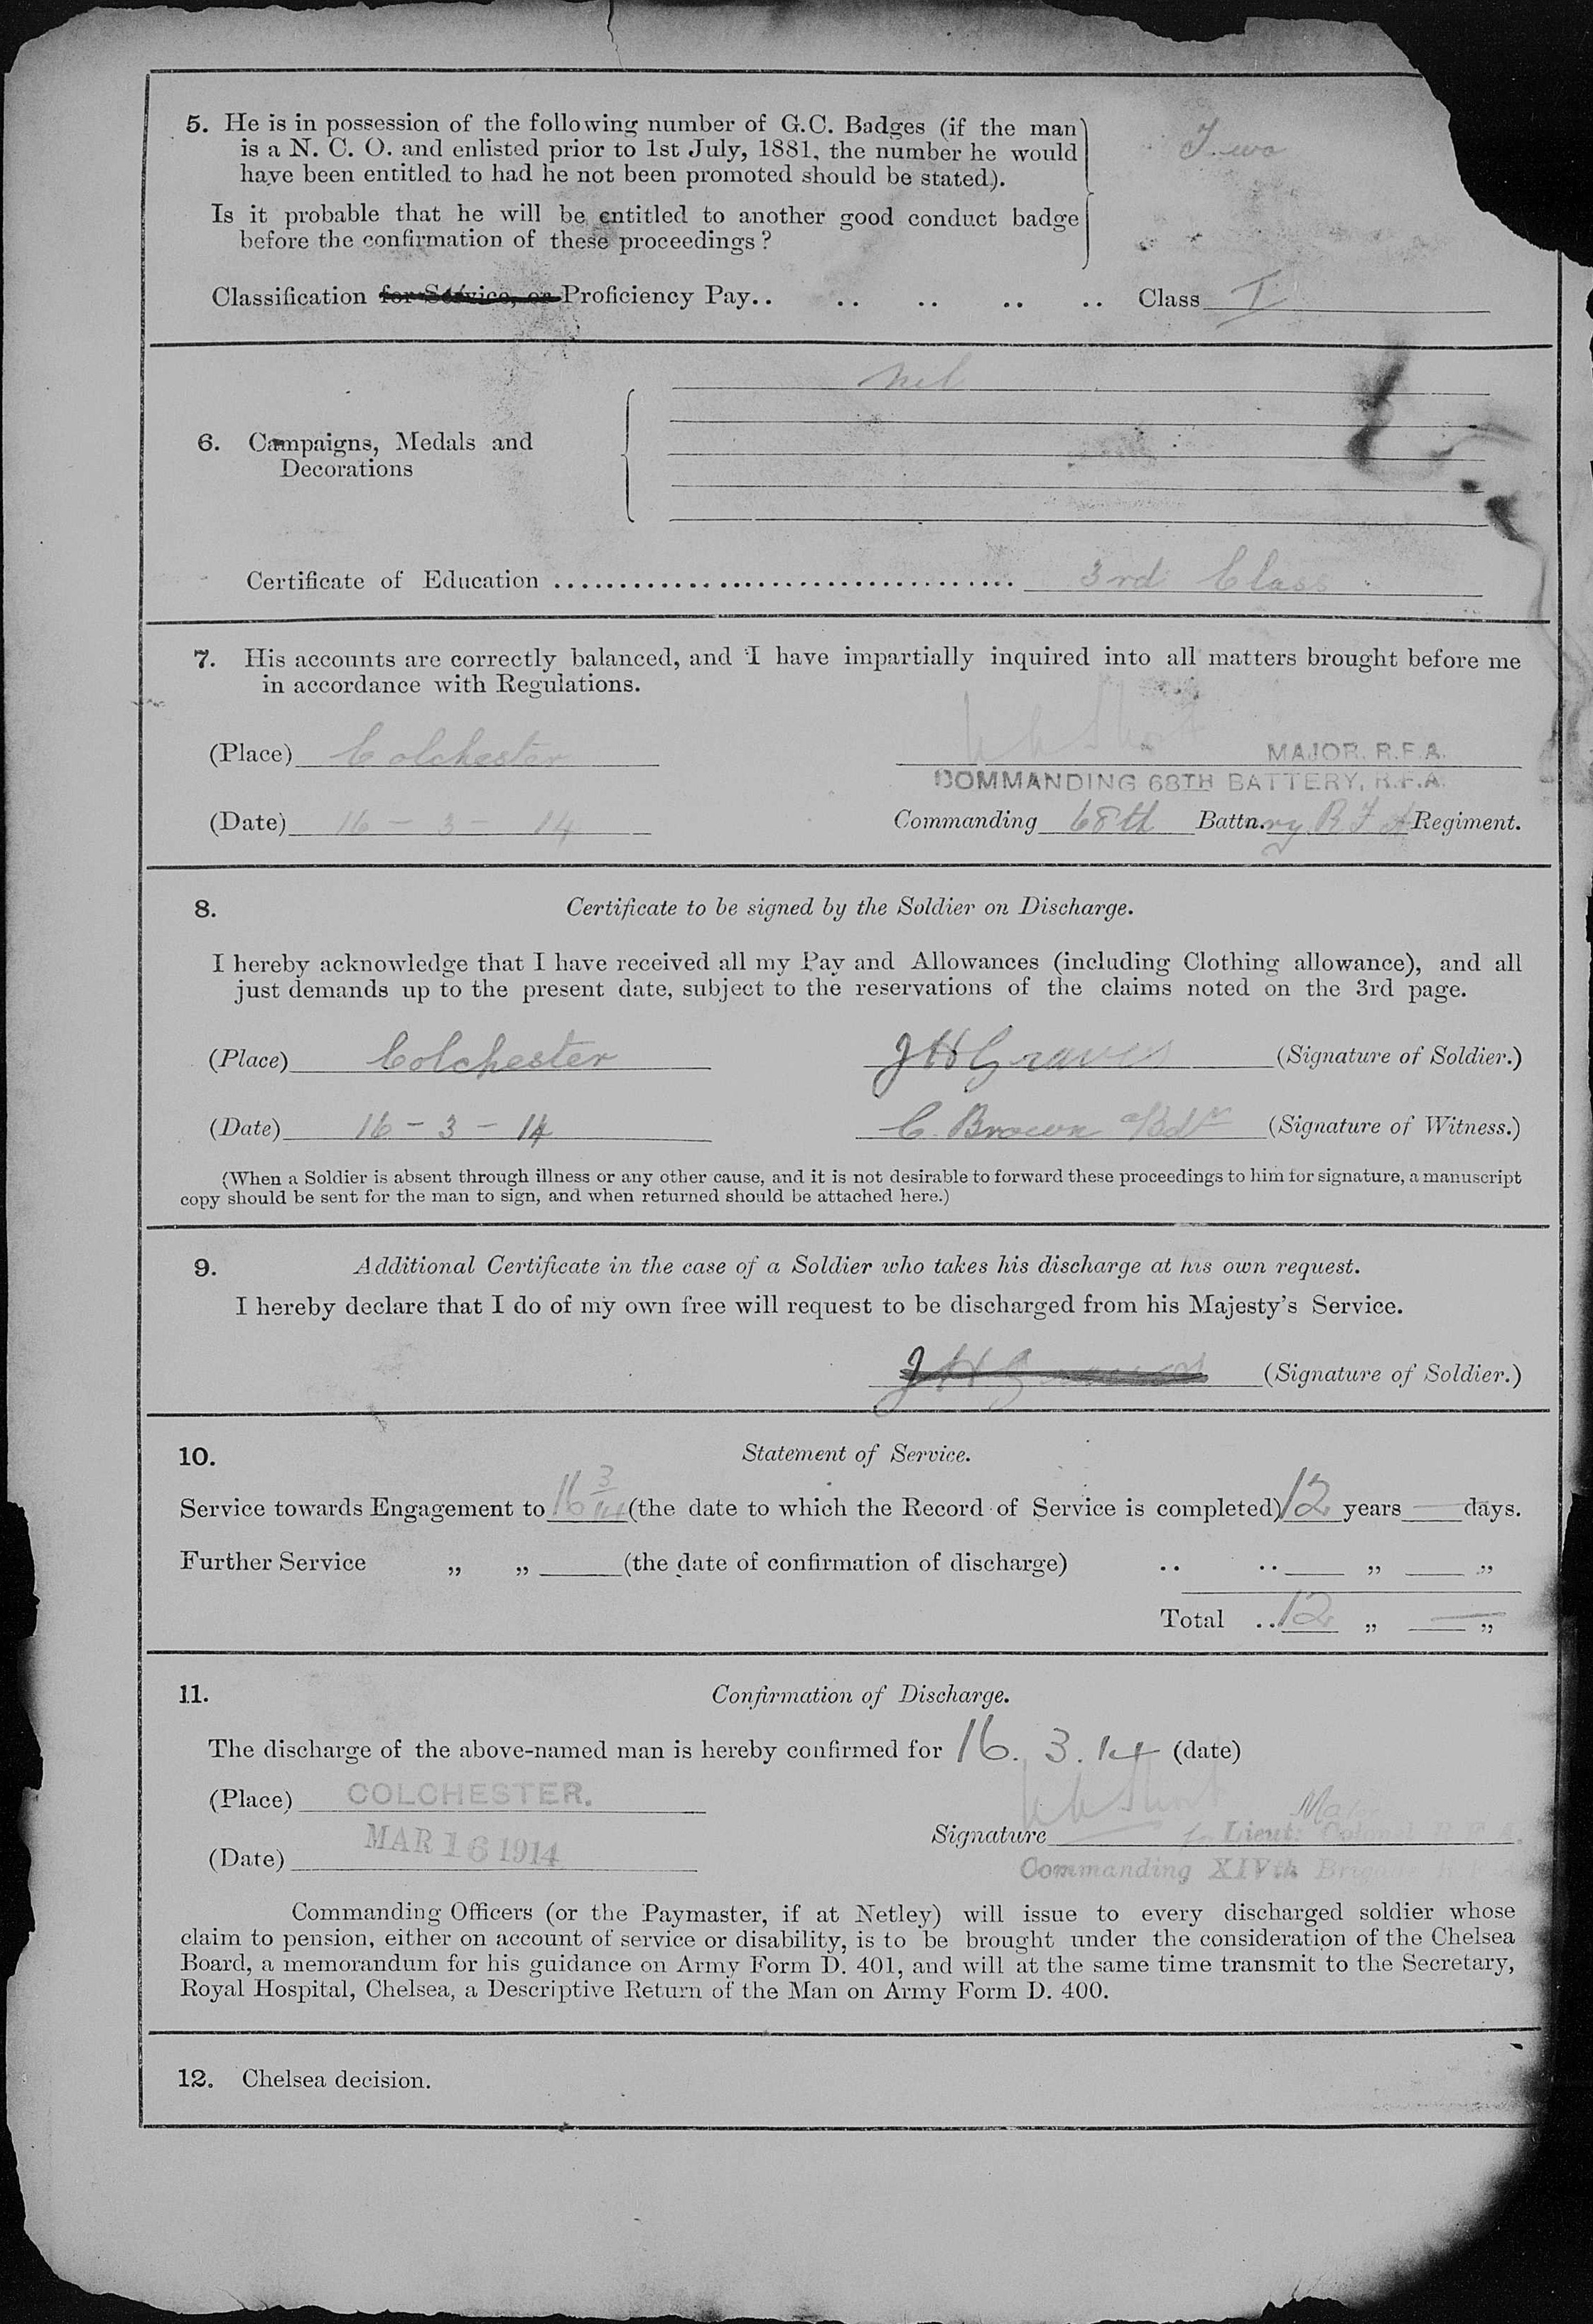 5. He is in possession of the following number of G.C. Badges (if the man
is a N. C. O. and enlisted prior to 1st July, 1881, the number he would
have been entitled to had he not been promoted should be stated).
Two
Is it probable that he will be entitled to another good conduct badge
before the confirmation of these proceedings ?
Classification for Service, or Proficiency Pay.. .. .. .. .. Class I
nil
6. Campaigns, Medals and
Decorations
Certificate of Education .................................... 3rd Class
7. His accounts are correctly balanced, and I have impartially inquired into all matters brought before me
in accordance with Regulations.
(Place) Colchester MAJOR. R.F.A.
COMMANDING 68TH BATTERY, R.F.A.
(Date) 16 - 3 - 14 Commanding 68th Battn.ry R F A Regiment.
8. Certificate to be signed by the Soldier on Discharge.
I hereby acknowledge that I have received all my Pay and Allowances (including Clothing allowance), and all
just demands up to the present date, subject to the reservations of the claims noted on the 3rd page.
(Place) Colchester J H Graves (Signature of Soldier.)
(Date) 16 - 3 - 14 C. Brown a/Bdr (Signature of Witness.)
(When a Soldier is absent through illness or any other cause, and it is not desirable to forward these proceedings to him for signature, a manuscript
copy should be sent for the man to sign, and when returned should be attached here.)
9. Additional Certificate in the case of a Soldier who takes his discharge at his own request.
I hereby declare that I do of my own free will request to be discharged from his Majesty's Service.
J H Graves (Signature of Soldier.)
10. Statement of Service.
Service towards Engagement to 16 3/14 (the date to which the Record of Service is completed) 12 years — days.
Further Service „ „ (the date of confirmation of discharge) .. .. „ „
Total .. 12 „ — „
11. Confirmation of Discharge.
The discharge of the above-named man is hereby confirmed for 16. 3. 14 (date)
(Place) COLCHESTER.
Major
Signature Lieut: Colonel R.F.A.
(Date) MAR 16 1914
Commanding XIVth Brigade
Commanding Officers (or the Paymaster, if at Netley) will issue to every discharged soldier whose
claim to pension, either on account of service or disability, is to be brought under the consideration of the Chelsea
Board, a memorandum for his guidance on Army Form D. 401, and will at the same time transmit to the Secretary,
Royal Hospital, Chelsea, a Descriptive Return of the Man on Army Form D. 400.
12. Chelsea decision.